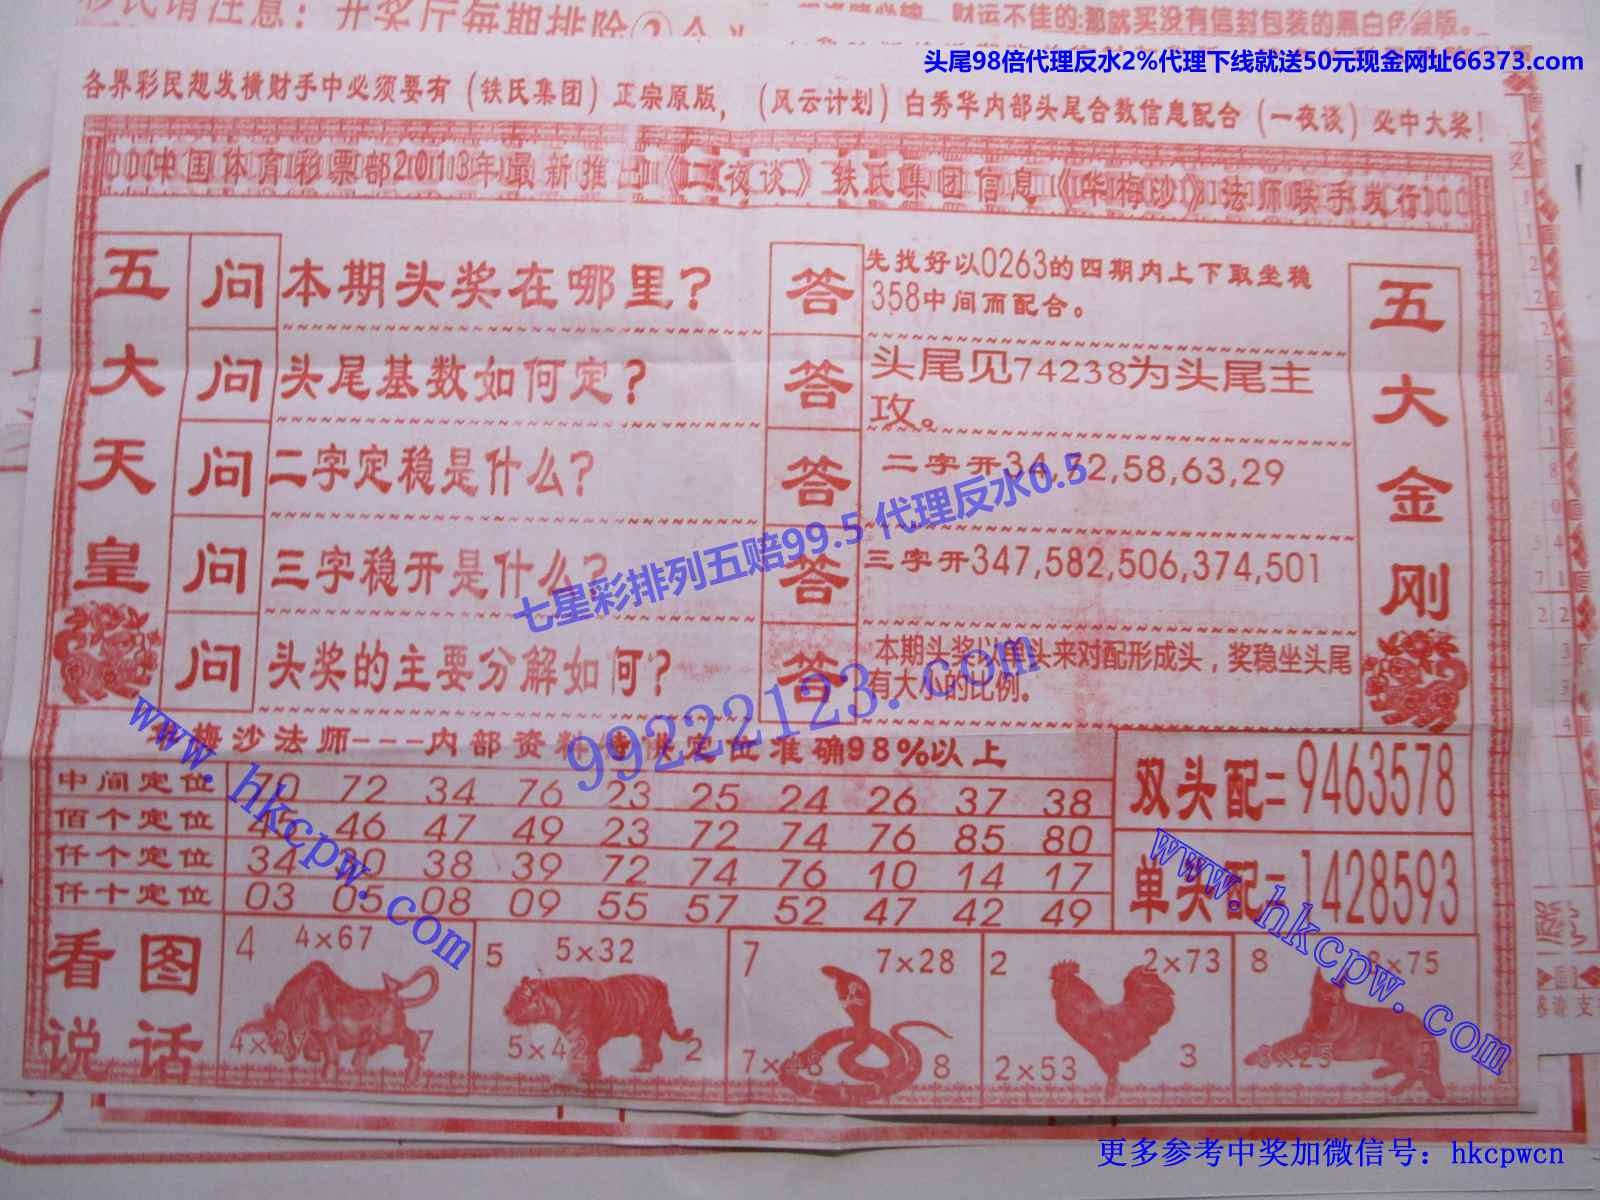 彩民请注意：开奖厅每期排除②个
财运不佳的:那就买没有信封包装的黑白色
头尾98倍代理反水2%代理下线就送50元现金网址66373.com
各界彩民想发横财手中必须要有（铁氏集团）正宗原版，（风云计划）白秀华内部头尾合数信息配合（一夜谈）必中大奖！
中国体育彩票部2013年最新推出《一夜谈》铁氏集团信息《华梅沙》法师联手发行
五大天皇
问 本期头奖在哪里？
答 先找好以0263的四期内上下取坐稳
358中间而配合。
问 头尾基数如何定？
答 头尾见74238为头尾主
攻。
问 二字定稳是什么？
答 二字开34,72,58,63,29
问 三字稳开是什么？
答 三字开347,582,506,374,501
问 头奖的主要分解如何？
答 本期头奖以单头来对配形成头，奖稳坐头尾
有大小的比例。
五大金刚
七星彩排列五赔99.5 代理反水0.5
99222123.com
www.hkcpw.com
梅沙法师---内部资料 定位准确98%以上
中间定位 70 72 34 76 23 25 24 26 37 38
佰个定位 45 46 47 49 23 72 74 76 85 80
仟个定位 34 30 38 39 72 74 76 10 14 17
仟十定位 03 05 08 09 55 57 52 47 42 49
双头配=9463578
单头配=1428593
www.hkcpw.com
看图
说话
4 4×67
7
5 5×32
5×42 2
7 7×28
7×48 8
2 2×73
2×53 3
8 8×75
8×25
更多参考中奖加微信号：hkcpwcn